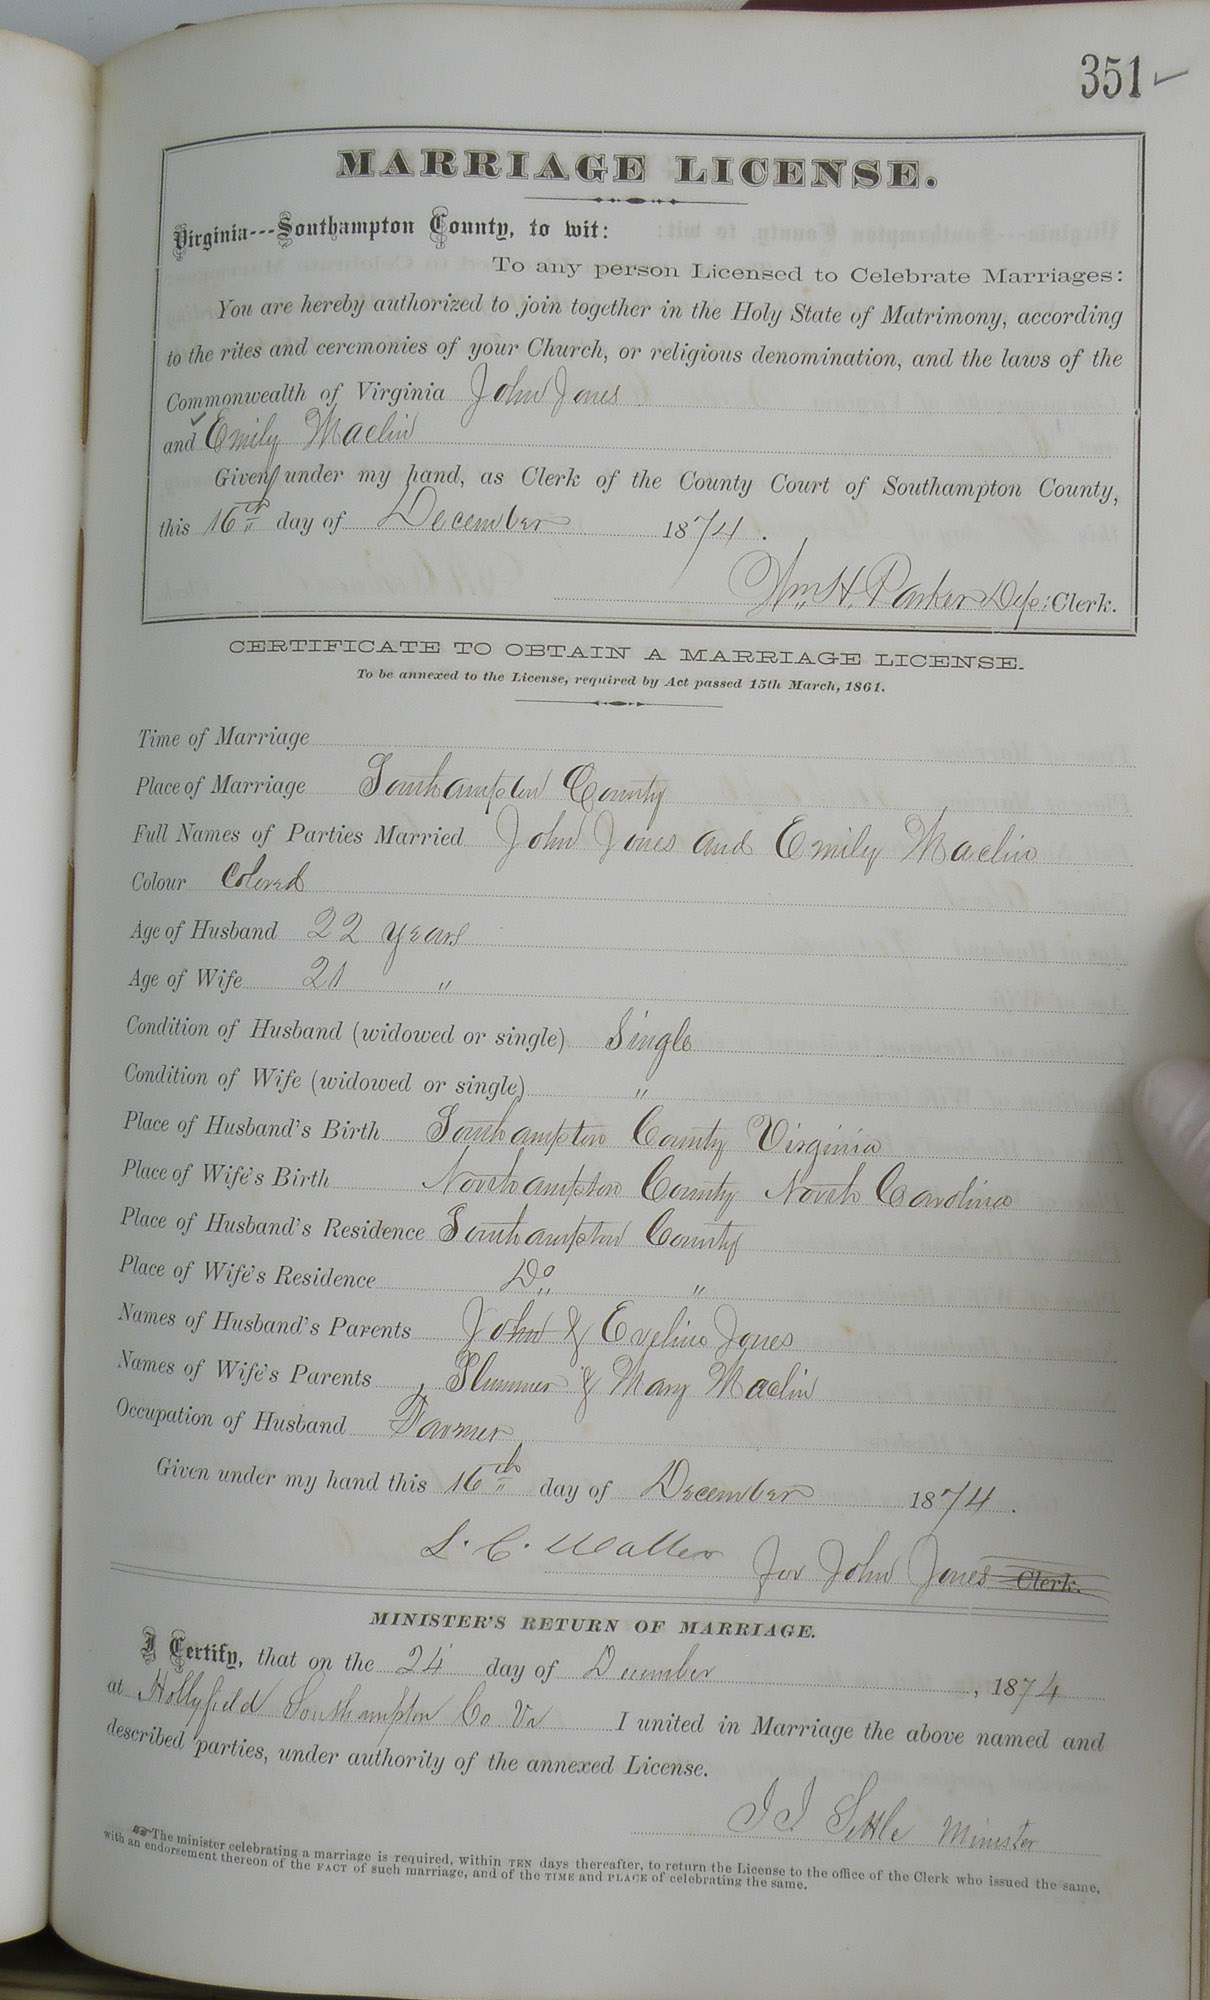 351
MARRIAGE LICENSE.
Virginia---Southampton County, to wit:
To any person Licensed to Celebrate Marriages:
You are hereby authorized to join together in the Holy State of Matrimony, according
to the rites and ceremonies of your Church, or religious denomination, and the laws of the
Commonwealth of Virginia John Jones
and Emily Maclin
Given under my hand, as Clerk of the County Court of Southampton County,
this 16th day of December 1874.
Wm H. Parker Dep: Clerk.
CERTIFICATE TO OBTAIN A MARRIAGE LICENSE.
To be annexed to the License, required by Act passed 15th March, 1861.
Time of Marriage
Place of Marriage Southampton County
Full Names of Parties Married John Jones and Emily Maclin
Colour Colored
Age of Husband 22 years
Age of Wife 21 "
Condition of Husband (widowed or single) Single
Condition of Wife (widowed or single) "
Place of Husband's Birth Southampton County Virginia
Place of Wife's Birth Northampton County North Carolina
Place of Husband's Residence Southampton County
Place of Wife's Residence Do "
Names of Husband's Parents John & Eveline Jones
Names of Wife's Parents Plummer & Mary Maclin
Occupation of Husband Farmer
Given under my hand this 16th day of December 1874.
L. C. Waller for John Jones Clerk.
MINISTER'S RETURN OF MARRIAGE.
I Certify, that on the 24 day of December, 1874
at Hollyfield Southampton Co Va I united in Marriage the above named and
described parties, under authority of the annexed License.
Settle Minister
The minister celebrating a marriage is required, within TEN days thereafter, to return the License to the office of the Clerk who issued the same,
with an endorsement thereon of the FACT of such marriage, and of the TIME and PLACE of celebrating the same.